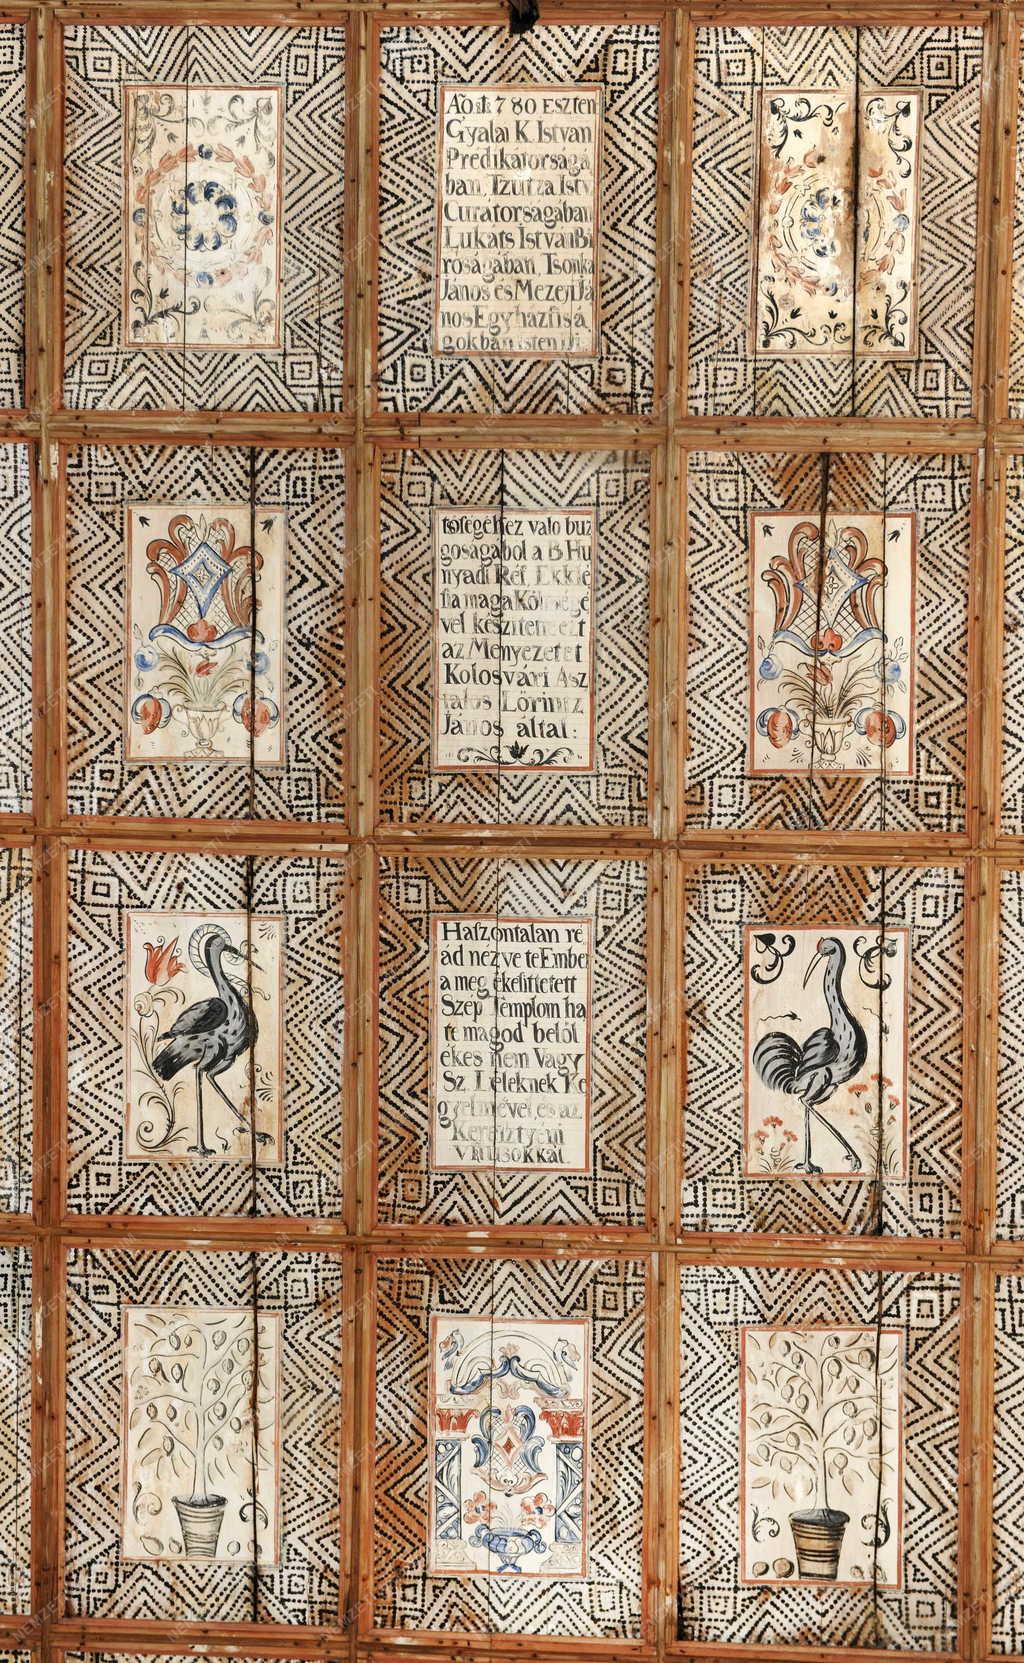 1780 Eszten
Gyalai K. Istvan
Prédikátorságá
ban, Tzutza Istv
Curátorságában
Lukáts István Bi
roságában, Tsonka
János és Mezei Já
nos Egyházfisá
gokban Isten
valo buz
goságábol a B. Hu
nyadi Réf. Ekkle
sia maga Költségé
vel készittette ezt
az Menyezetet
Kolosvári Asz
talos Lőrintz
János által:
Haszontalan re
ád nezve te Ember
a meg ékesittetett
Szép Templom ha
te magod belől
ékes nem Vagy
Sz. Léleknek Ke
gyelmével és az
Keresztyéni
Virtusokkal.